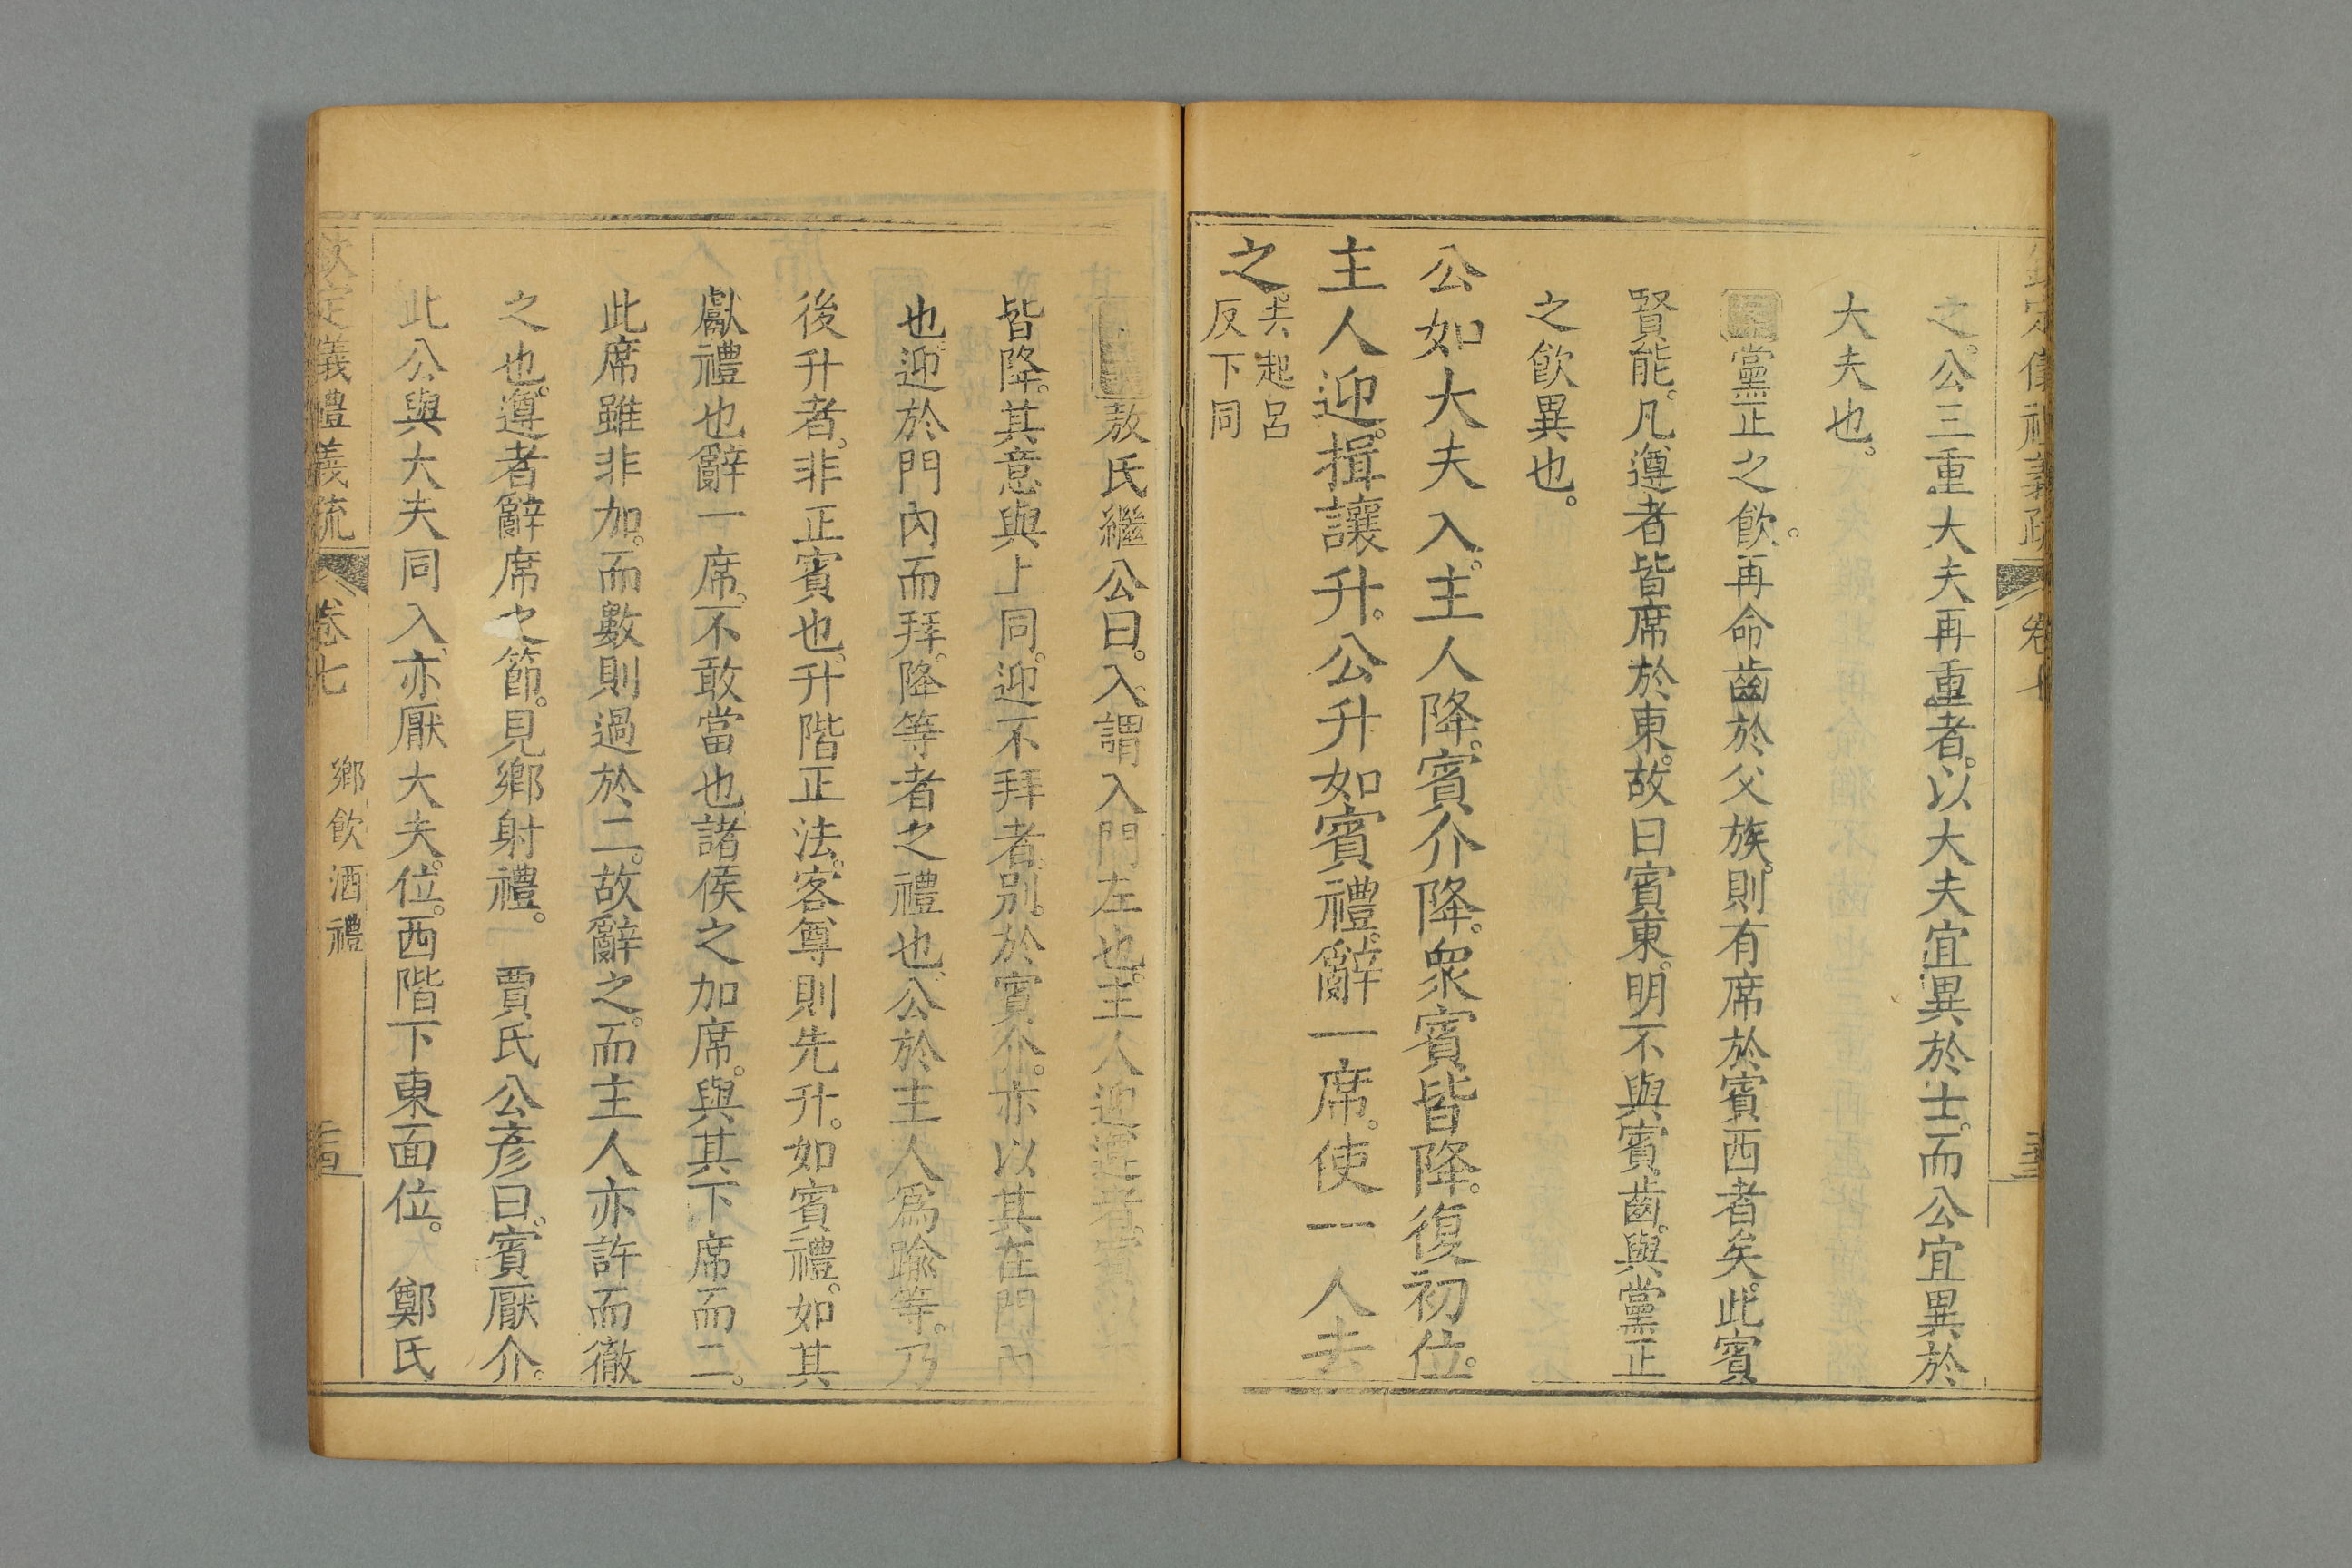 定儀禮義疏 卷七
之。公三重大夫再重者。以大夫宜異於士。而公宜異於
大夫也。
黨正之飲。再命齒於父族。則有席於賓西者矣。此賓
賢能。凡遵者皆席於東。故曰賓東。明不與賓齒。與黨正
之飲異也。
公如大夫入。主人降。賓介降。衆賓皆降。復初位。
主人迎。揖讓升。公升如賓禮。辭一席。使一人去
之。去起呂
反下同
敖氏繼公曰。入謂入門左也。主人迎遵者。賓
皆降。其意與上同。迎不拜者。別於賓介。亦以其在門內
也。迎於門內而拜。降等者之禮也。公於主人爲踰等。乃
後升者。非正賓也。升階正法。客尊則先升。如賓禮。如其
獻禮也。辭一席。不敢當也。諸侯之加席。與其下席而二。
此席雖非加。而數則過於二。故辭之。而主人亦許而徹
之也。遵者辭席之節。見鄉射禮。 賈氏公彥曰。賓厭介。
此公與大夫同入。亦厭大夫。位。西階下東面位。 鄭氏
欽定儀禮義疏 卷七 鄉飲酒禮